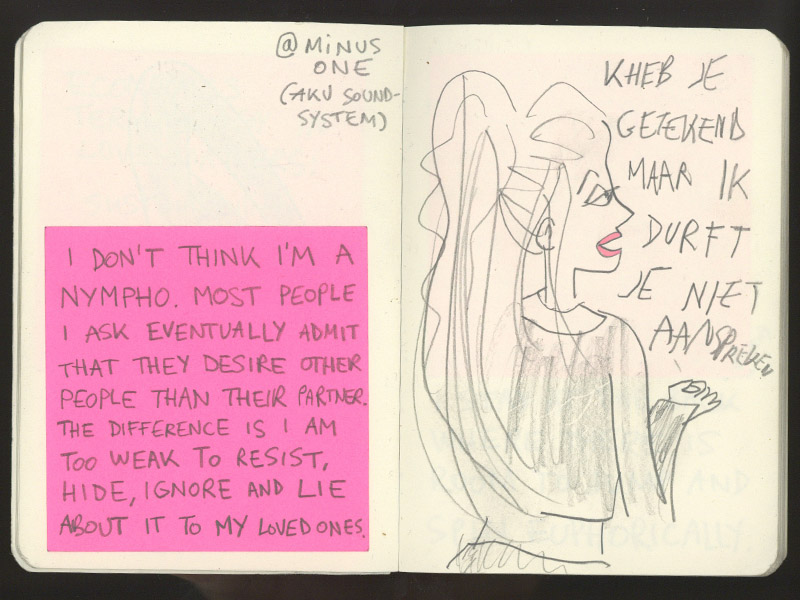 @ MINUS
ONE
(AKU SOUND-
SYSTEM)
I DON'T THINK I'M A
NYMPHO. MOST PEOPLE
I ASK EVENTUALLY ADMIT
THAT THEY DESIRE OTHER
PEOPLE THAN THEIR PARTNER.
THE DIFFERENCE IS I AM
TOO WEAK TO RESIST,
HIDE, IGNORE AND LIE
ABOUT IT TO MY LOVED ONES.
KHEB JE
GETEKEND
MAAR IK
DURFT
JE NIET
AANSPREKEN